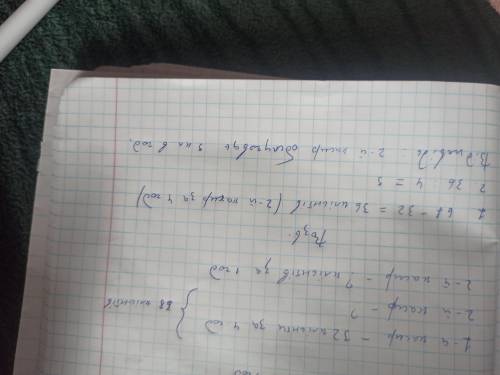 1-й касир - 32 клієнти за 4 год
2-й касир - ?
68 клієнтів
2-й касир - ? клієнтів за 1 год
Розв.
1. 68 - 32 = 36 клієнтів (2-й касир за 4 год)
2 36 4 = 9
2-й касир обслуговує 9 кл в год.